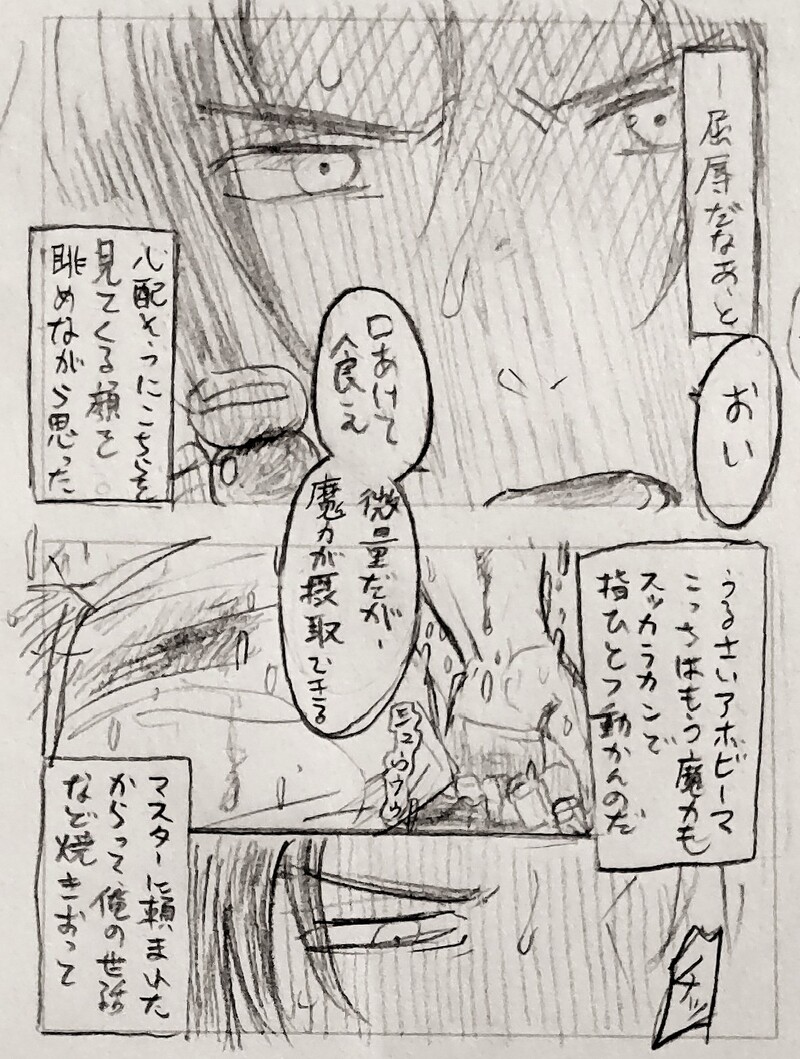 ー屈辱だなあと
おい
口あけて
食え
微量だが、
魔力が摂取できる
心配そうにこちらを
見てくる顔を
眺めながら思った
うるさいアホビーマ
こっちはもう魔力も
スッカラカンで
指ひとつ動かんのだ
ジュウウゥ
マスターに頼まれた
からって、俺の世話
など焼きおって
チッ